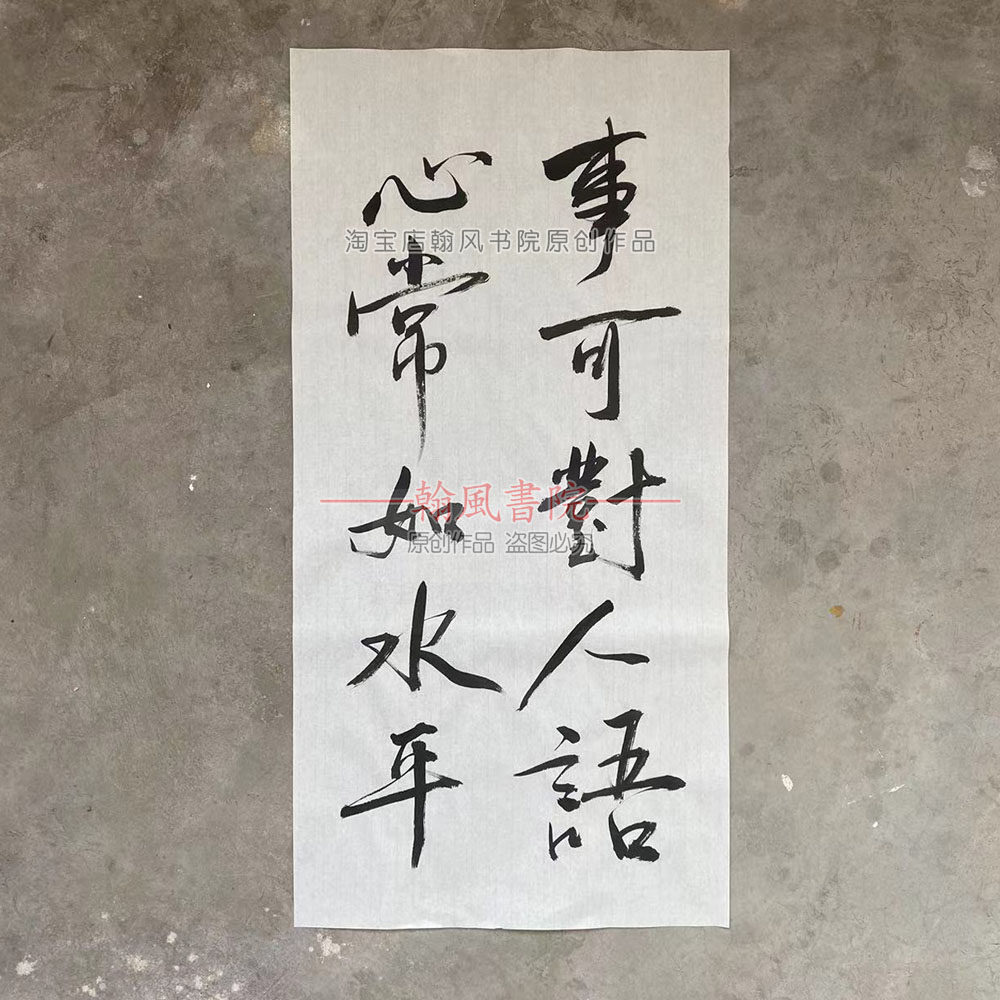 事可對人語
心常如水平
淘宝店翰风书院原创作品
翰風書院
原创作品 盗图必究